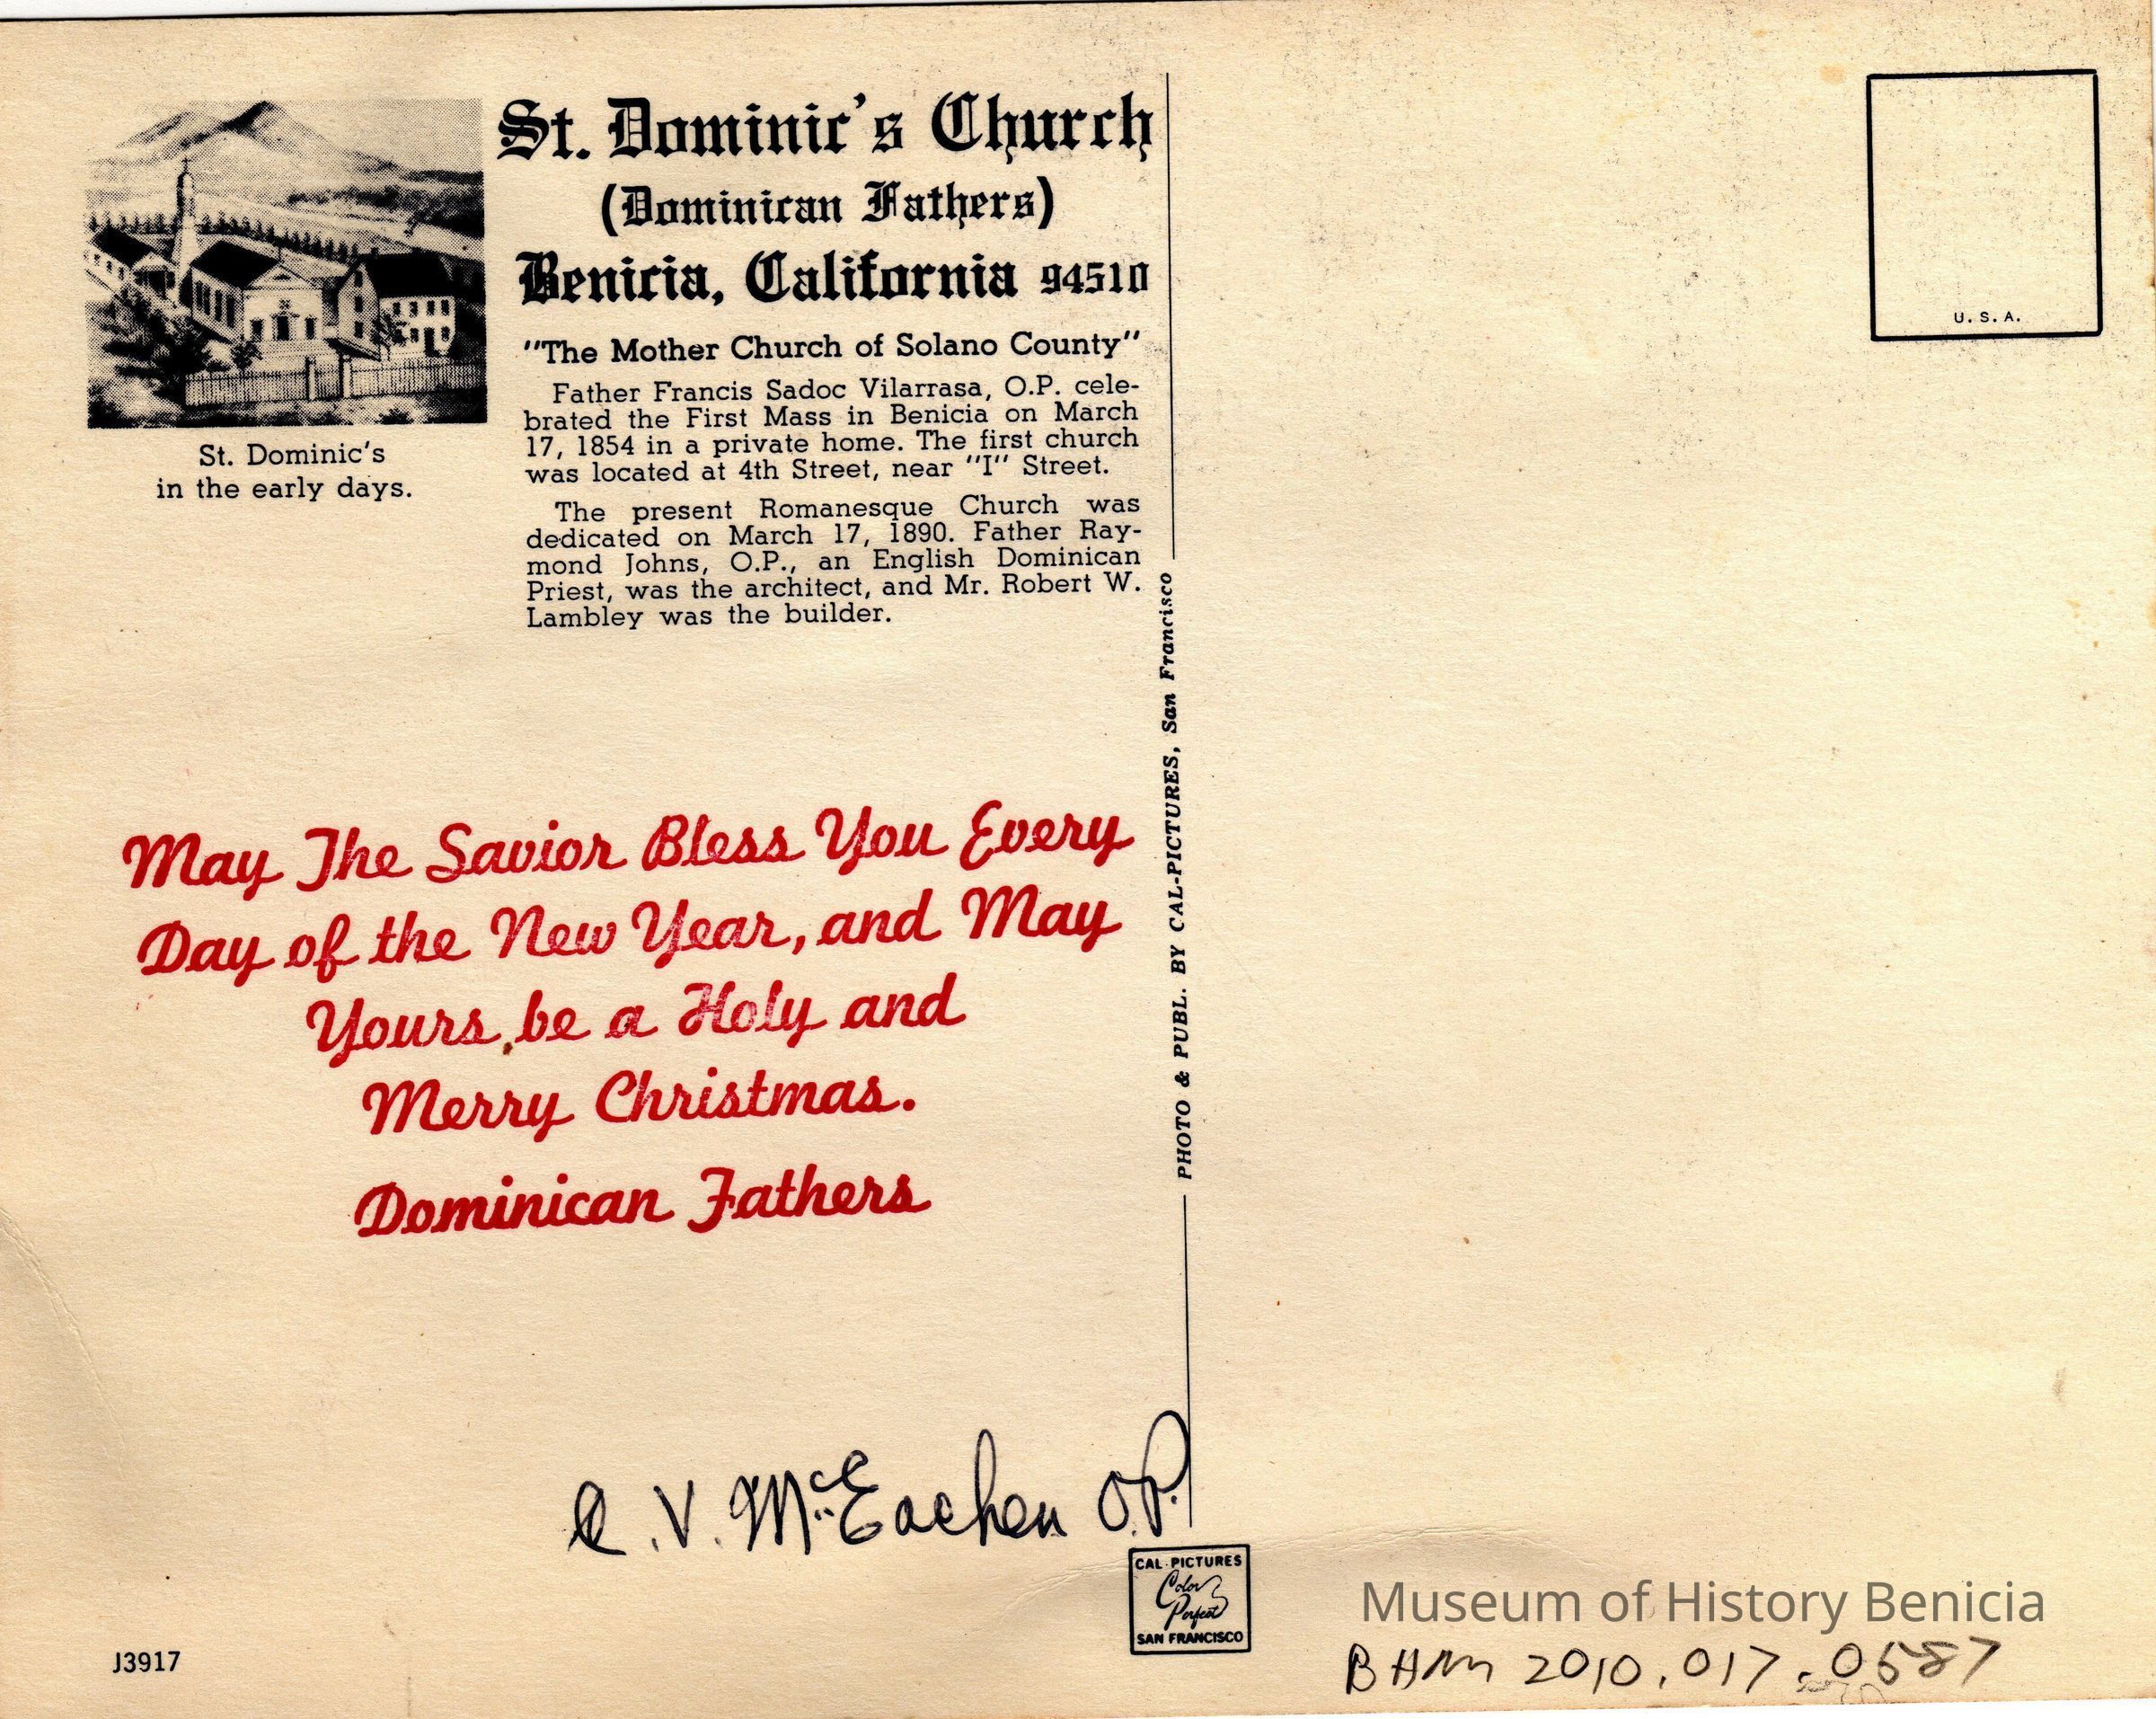 St. Dominic's Church
(Dominican Fathers)
Benicia, California 94510
"The Mother Church of Solano County"
Father Francis Sadoc Vilarrasa, O.P. cele-
brated the First Mass in Benicia on March
17, 1854 in a private home. The first church
was located at 4th Street, near "I" Street.
The present Romanesque Church was
dedicated on March 17, 1890. Father Ray-
mond Johns, O.P., an English Dominican
Priest, was the architect, and Mr. Robert W.
Lambley was the builder.
St. Dominic's
in the early days.
May The Savior Bless You Every
Day of the New Year, and May
Yours be a Holy and
Merry Christmas.
Dominican Fathers
V. McEachen O.P.
J3917
PHOTO & PUBL. BY CAL-PICTURES, San Francisco
CAL-PICTURES
Color
Perfect
SAN FRANCISCO
U. S. A.
Museum of History Benicia
BHM 2010.017.0587